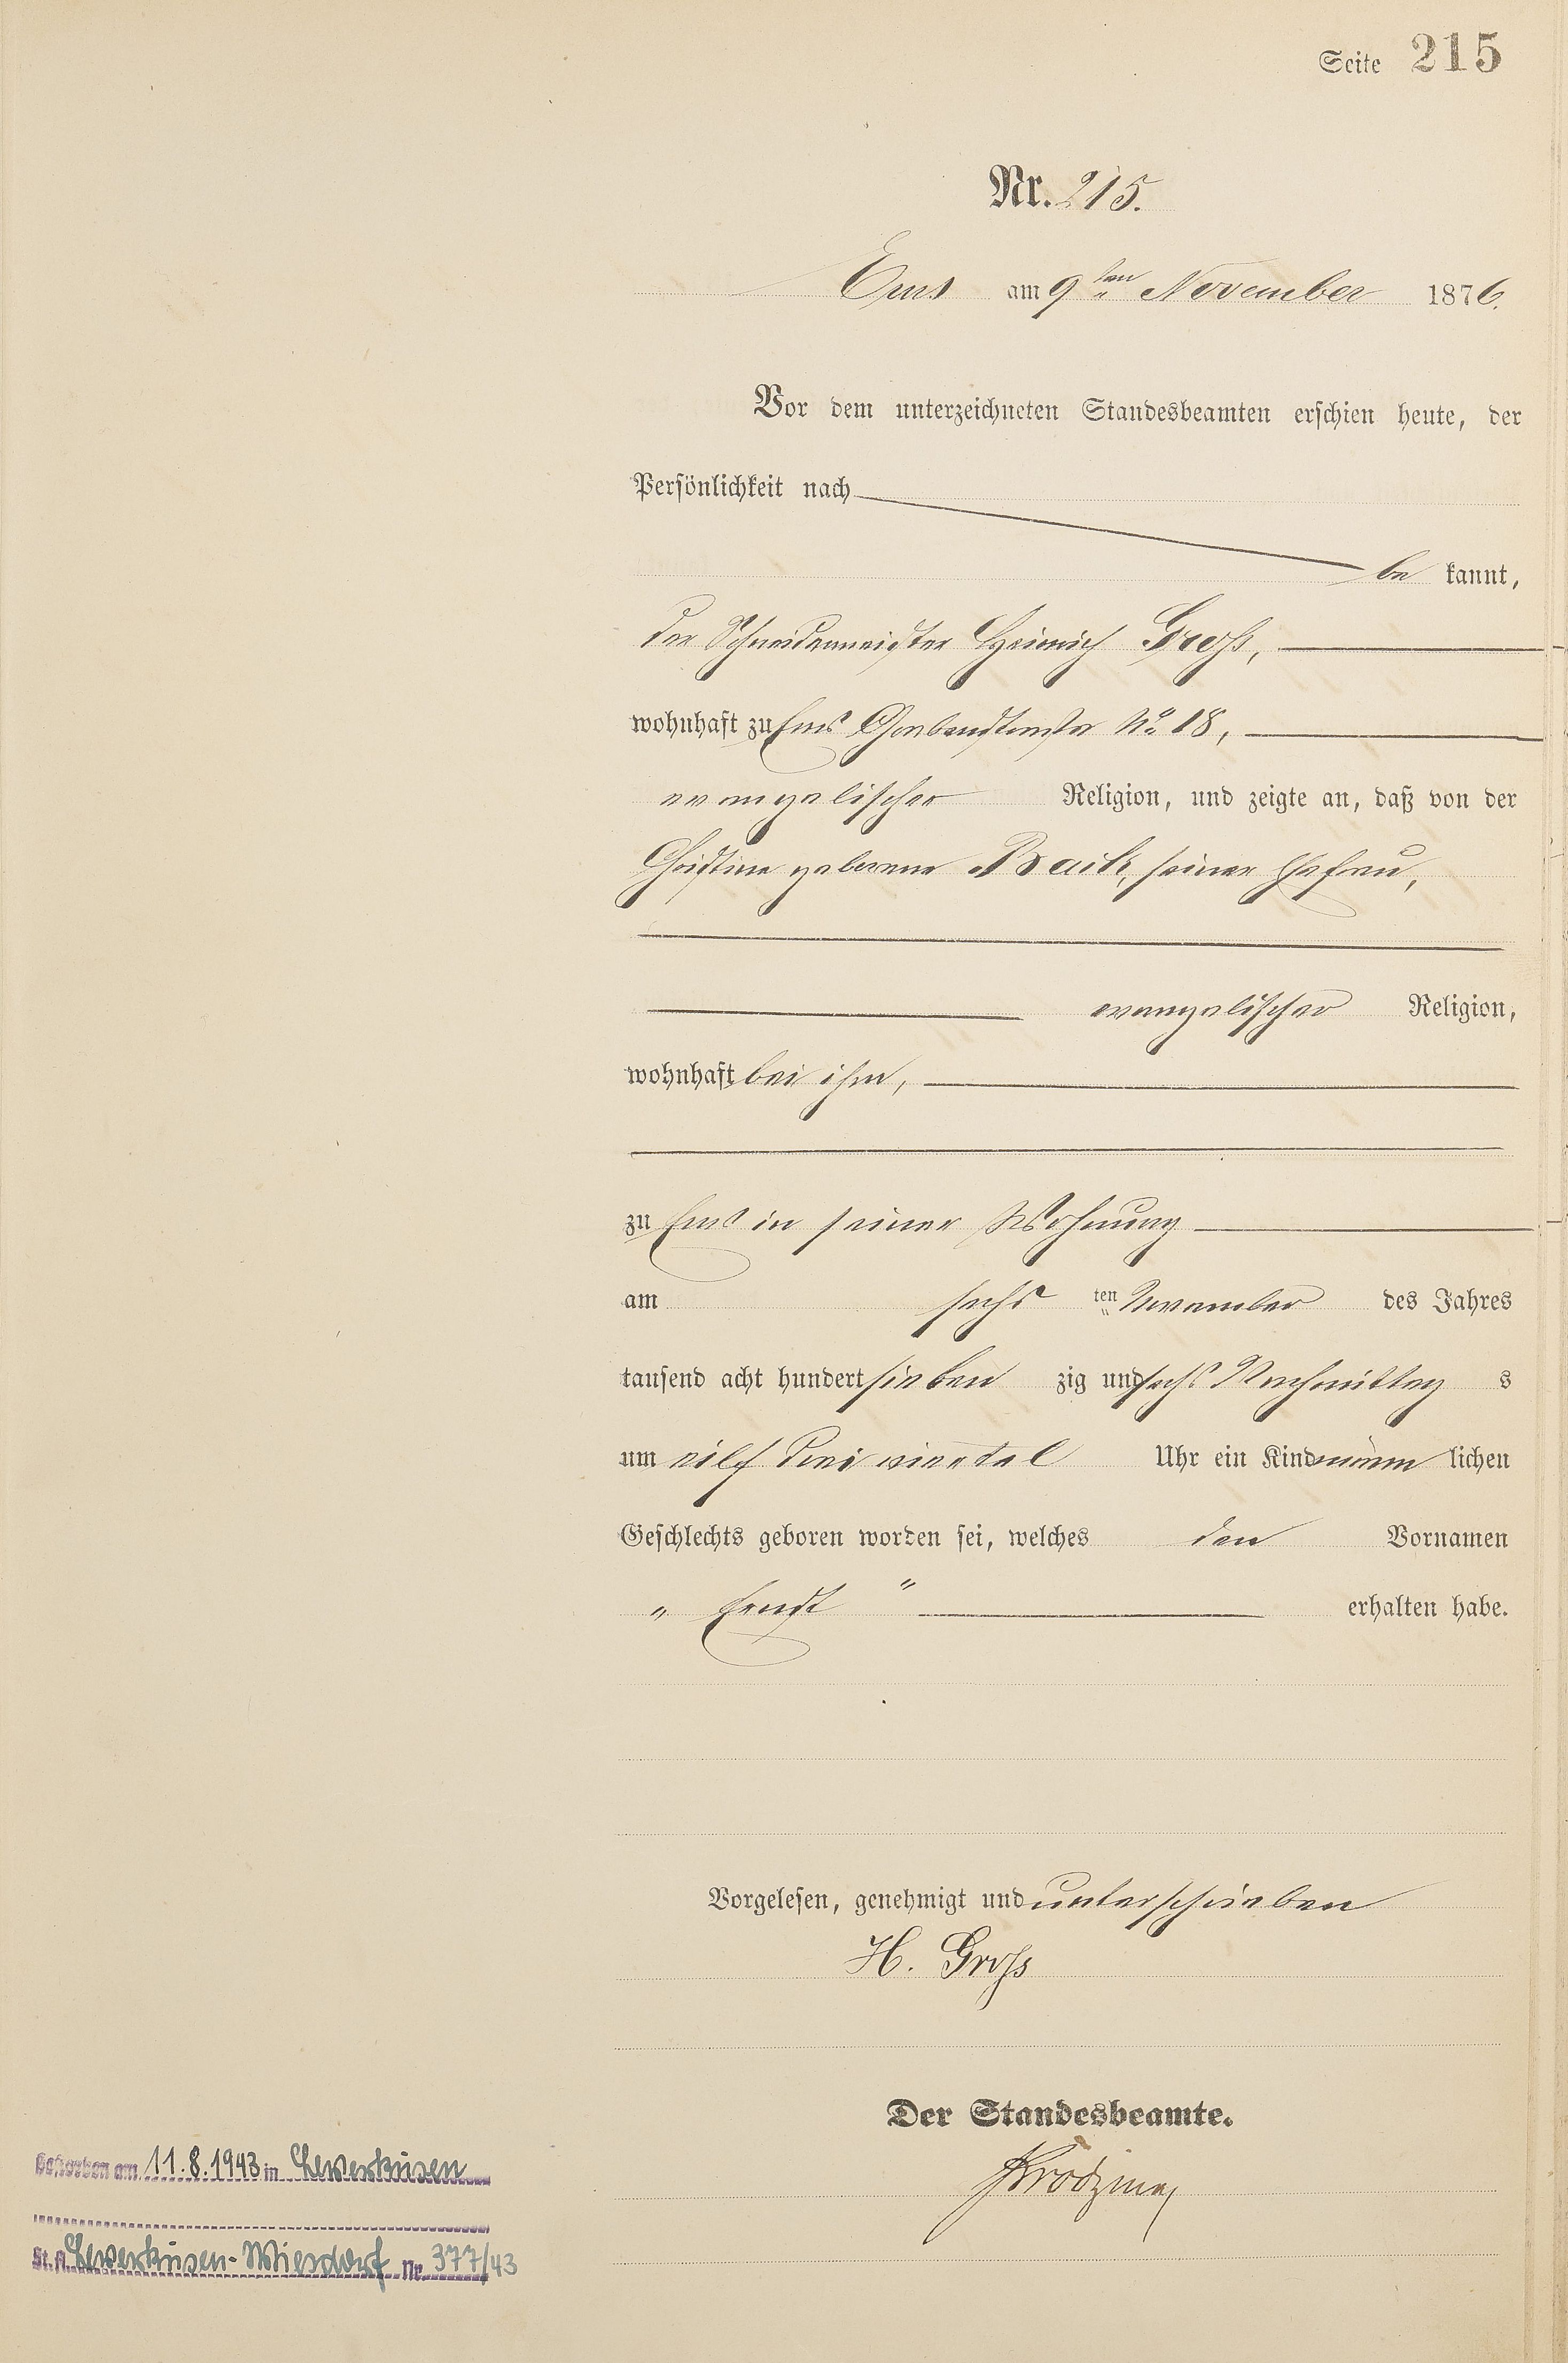 Seite 215
Nr. 215.
Ems am 9ten November 1876.
Vor dem unterzeichneten Standesbeamten erschien heute, der
Persönlichkeit nach
be kannt,
der Schneidermeister Heinrich Gross,
wohnhaft zu Ems No 18,
evangelischer Religion, und zeigte an, daß von der
Christine geborene seiner Ehefrau,
evangelischer Religion,
wohnhaft bei ihm,
zu Ems in seiner Wohnung
am sechs ten November des Jahres
tausend acht hundert sieben zig und sechs Nachmittag s
um eilf dreiviertel Uhr ein Kind männ lichen
Geschlechts geboren worden sei, welches den Vornamen
" Ernst "
erhalten habe.
Vorgelesen, genehmigt und unterschrieben
H. Gross
Der Standesbeamte.
Gestorben am 11.8.1943 in Leverkusen
St.A. Leverkusen-Wiesdorf Nr. 377/43